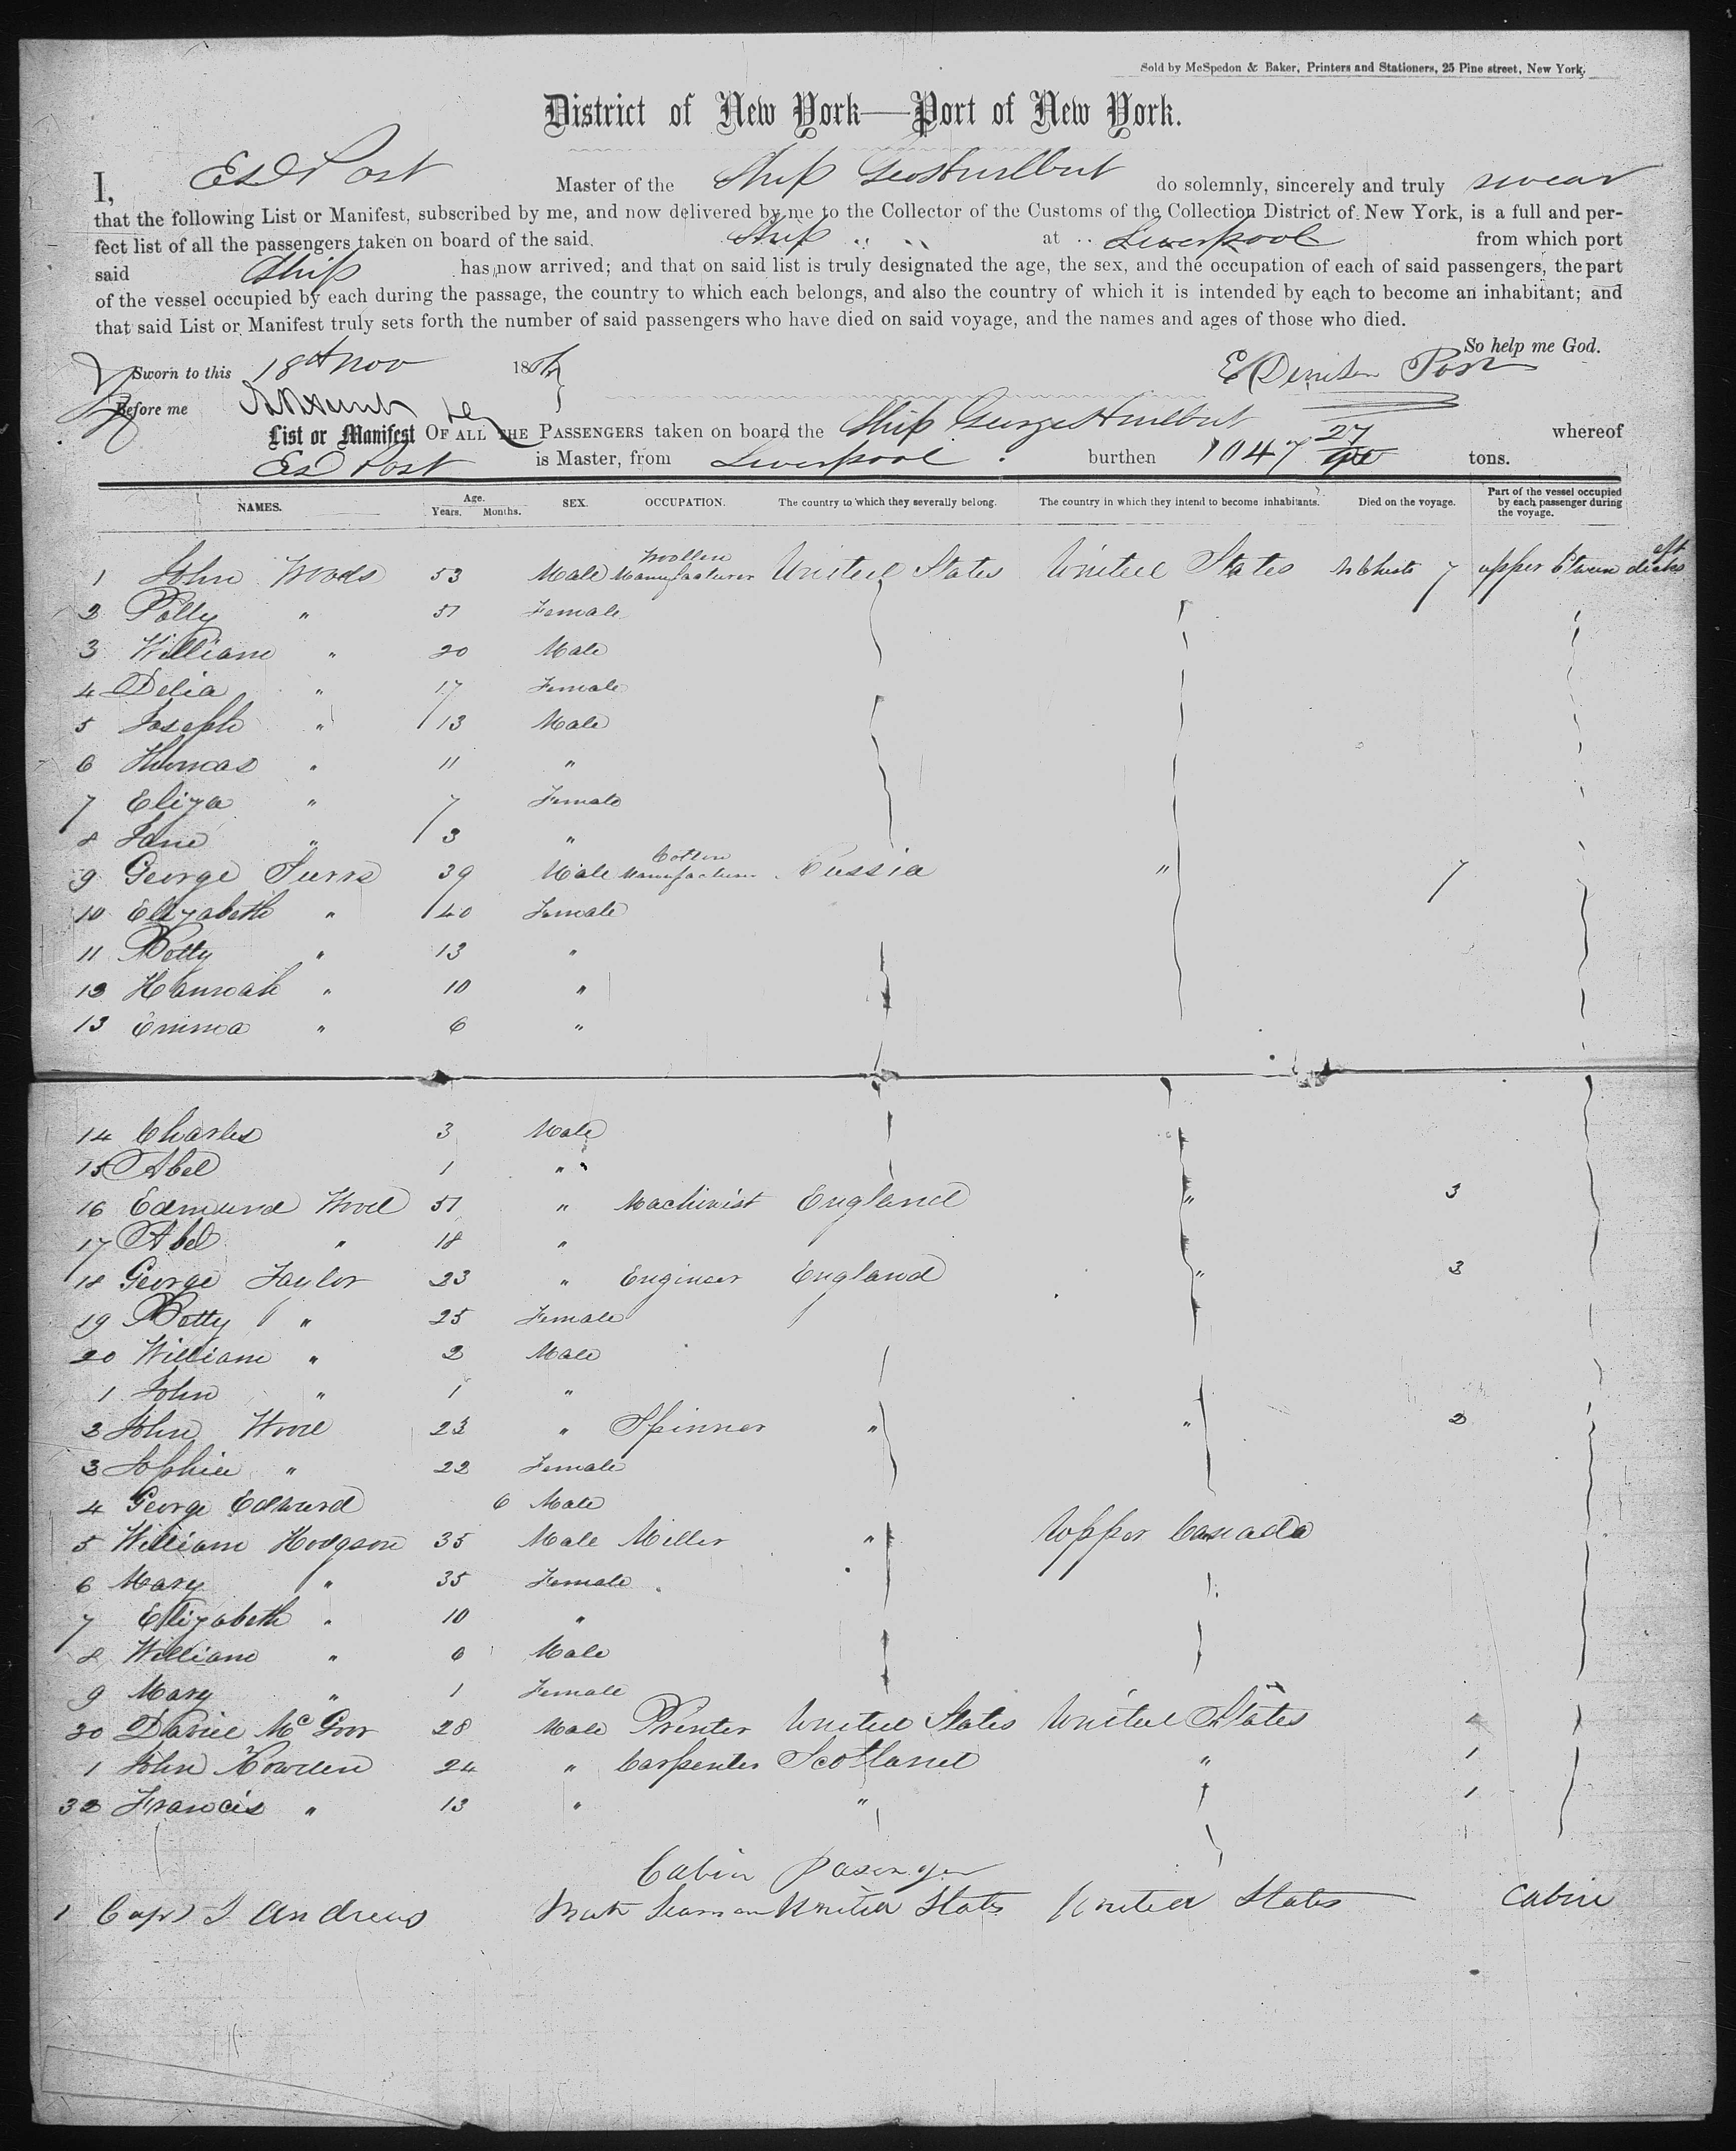 Sold by McSpedon & Baker, Printers and Stationers, 25 Pine street, New York.
District of New York—Port of New York.
I, E D Post Master of the Ship Geo Hurlbut do solemnly, sincerely and truly swear
that the following List or Manifest, subscribed by me, and now delivered by me to the Collector of the Customs of the Collection District of New York, is a full and per-
fect list of all the passengers taken on board of the said Ship " " at Liverpool from which port
said Ship has now arrived; and that on said list is truly designated the age, the sex, and the occupation of each of said passengers, the part
of the vessel occupied by each during the passage, the country to which each belongs, and also the country of which it is intended by each to become an inhabitant; and
that said List or Manifest truly sets forth the number of said passengers who have died on said voyage, and the names and ages of those who died.
So help me God.
Sworn to this 18th Nov 18 E Denison Post
Before me
List or Manifest OF ALL THE PASSENGERS taken on board the Ship George Hurlbut whereof
E D Post is Master, from Liverpool burthen 1047 27 tons.
NAMES. Age. Years. Months. SEX. OCCUPATION. The country to which they severally belong. The country in which they intend to become inhabitants. Died on the voyage. Part of the vessel occupied by each passenger during the voyage.
1 John Woods 53 Male Woollen Manufacturer United States United States 7 upper Between decks aft
2 Polly " 51 Female
3 William " 20 Male
4 Delia " 17 Female
5 Joseph " 13 Male
6 Thomas " 11 "
7 Eliza " 7 Female
8 Jane " 3 "
9 George 39 Male Cotton Manufacturer Russia " 7
10 Elizabeth " 40 Female
11 Betty " 13 "
12 Hannah " 10 "
13 Emma " 6 "
14 Charles 3 Male
15 Abel 1 "
16 Edmund Wood 51 " Machinist England " 3
17 Abel " 18 "
18 George Taylor 23 " Engineer England " 3
19 Betty " 25 Female
20 William " 2 Male
1 John " 1 "
2 John Wood 23 " Spinner " " 2
3 Sophia " 22 Female
4 George Edward 6 Male
5 William Hodgson 35 Male Miller " Upper Canada
6 Mary " 35 Female
7 Elizabeth " 10 "
8 William " 6 Male
9 Mary " 1 Female
30 Daniel 28 Male Printer United States United States
1 John Howden 24 " Carpenter Scotland " 1
32 Francis " 13 " " 1
Cabin Pasenger
1 Capt J Andrews Seaman United States United States Cabin